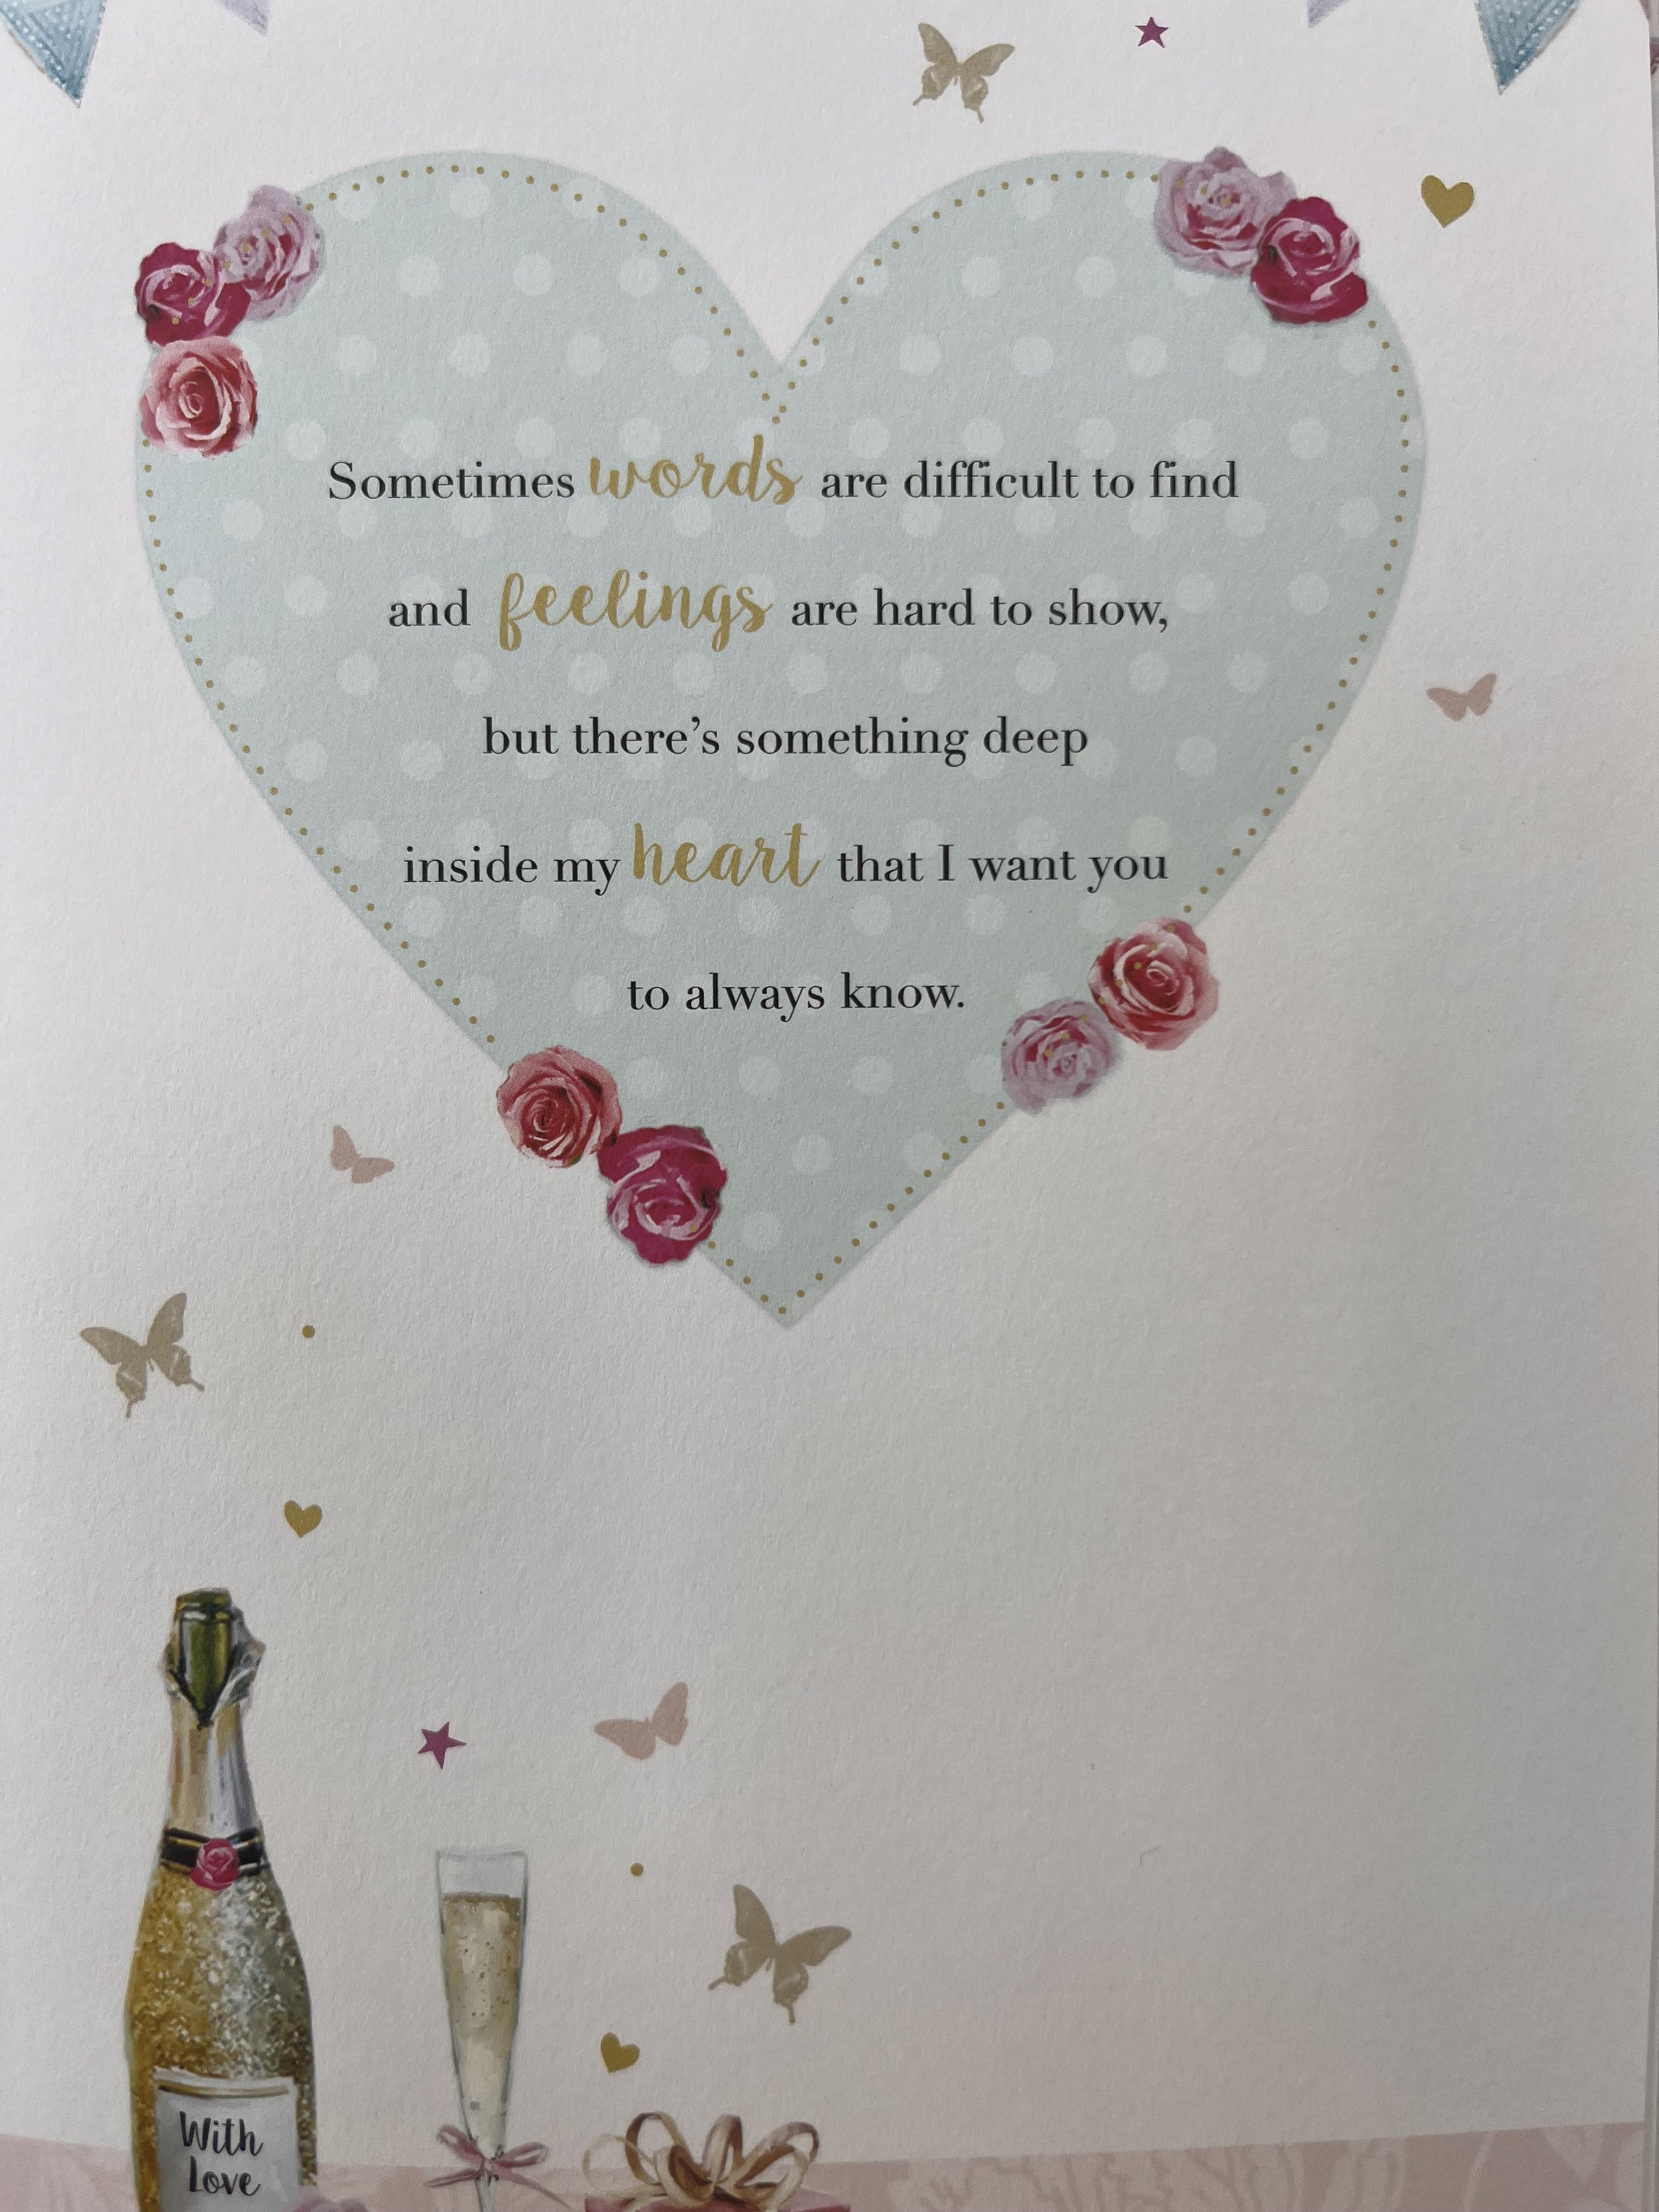 Sometimes words are difficult to find
and feelings are hard to show,
but there's something deep
inside my heart that I want you
to always know.
With
Love